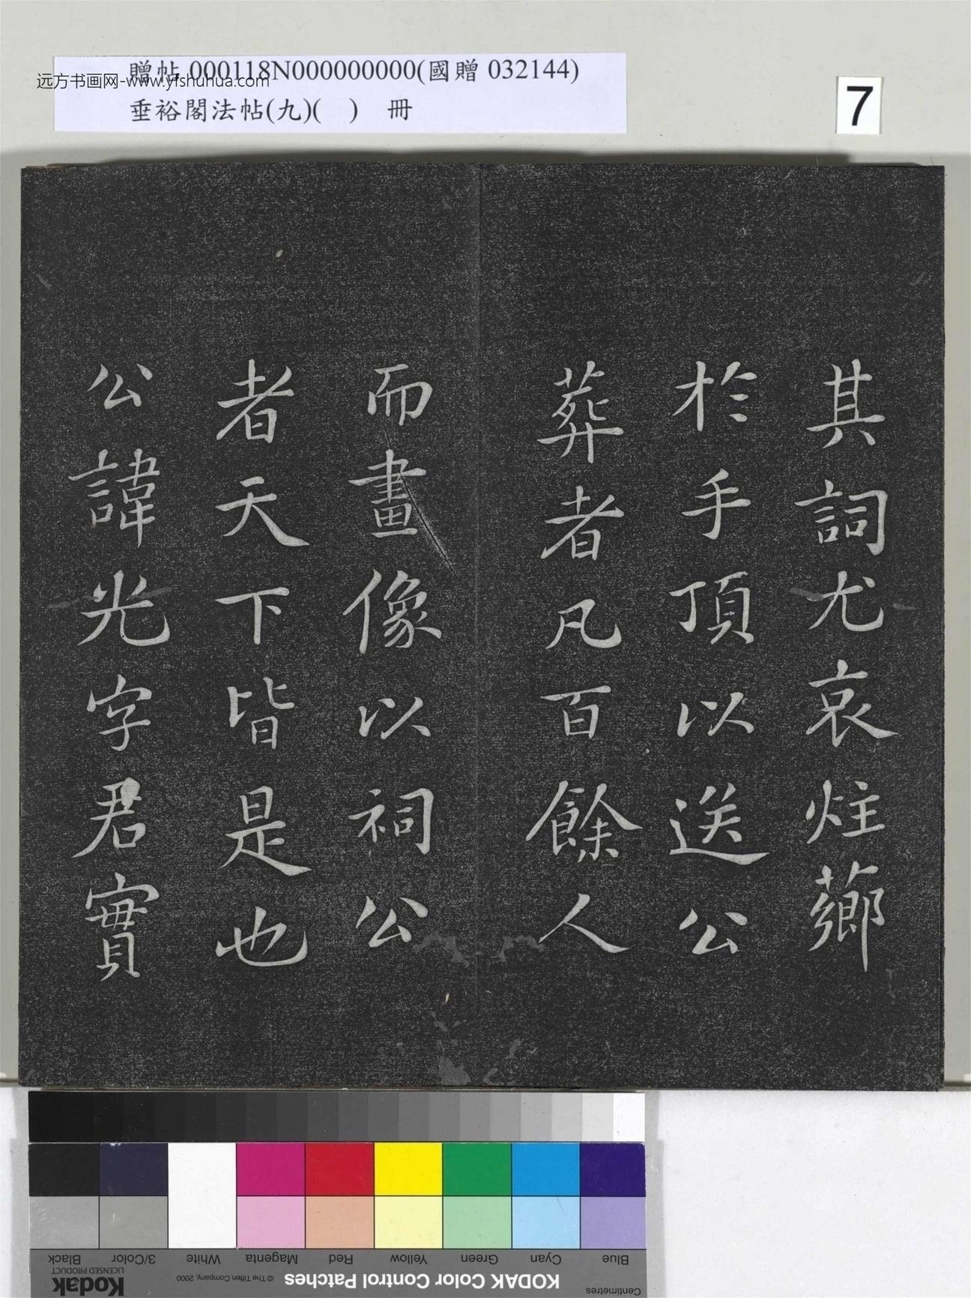 贈帖 000118N000000000(國贈 032144)
远方书画网-www.yfshuhua.com
垂裕閣法帖(九)( ) 冊
7
其詞尤哀炷薌
於手頂以送公
葬者凡百餘人
而畫像以祠公
者天下皆是也
公諱光字君實
Black
3/Color
White
Magenta
Red
Yellow
Green
Cyan
Blue
Kodak
LICENSED PRODUCT
© The Tiffen Company, 2000
KODAK Color Control Patches
Centimetres